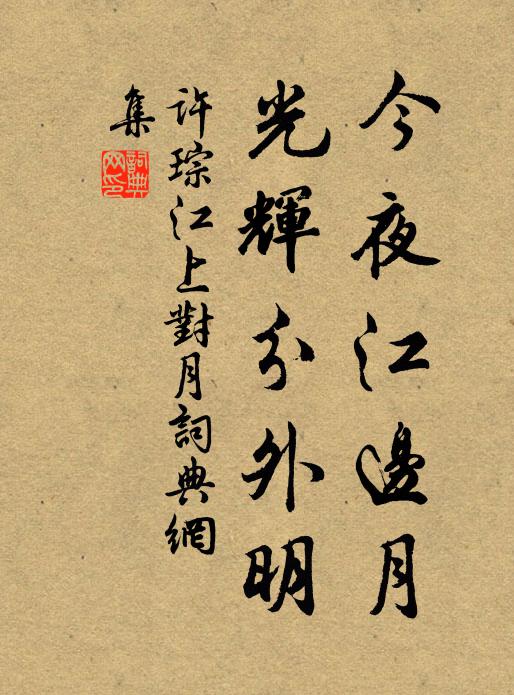 今夜江邊月
光輝分外明
許琮江上對月詞典網
集
詞典
网印